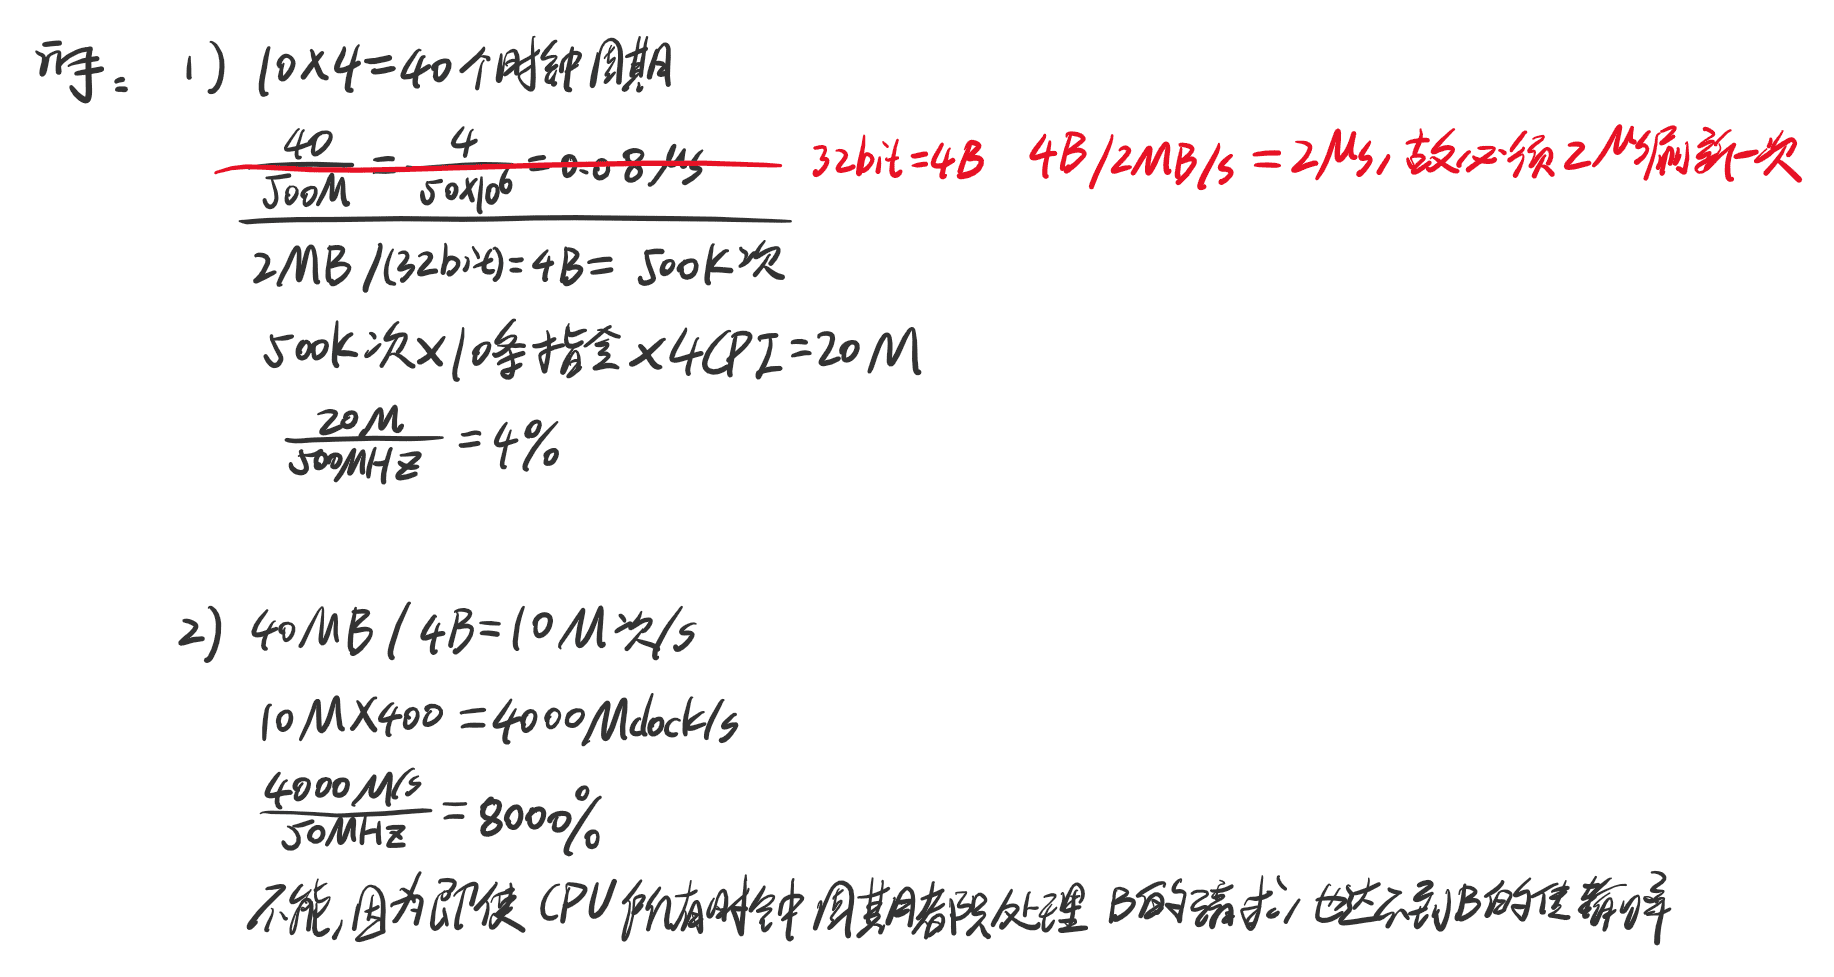 解: 1) 10×4=40个时钟周期
40/500M = 4/50×10⁶ = 0.08μs 32bit=4B 4B/2MB/s=2μs,故必须2μs刷新一次
2MB/(32bit)=4B= 500K次
500K次×10条指令×4CPI=20M
20M/500MHz =4%
2) 40MB/4B=10M次/s
10M×400=4000Mclock/s
4000M/s/50MHz =8000%
不能,因为即使CPU所有时钟周期都只处理B的请求,也达不到B的传输率